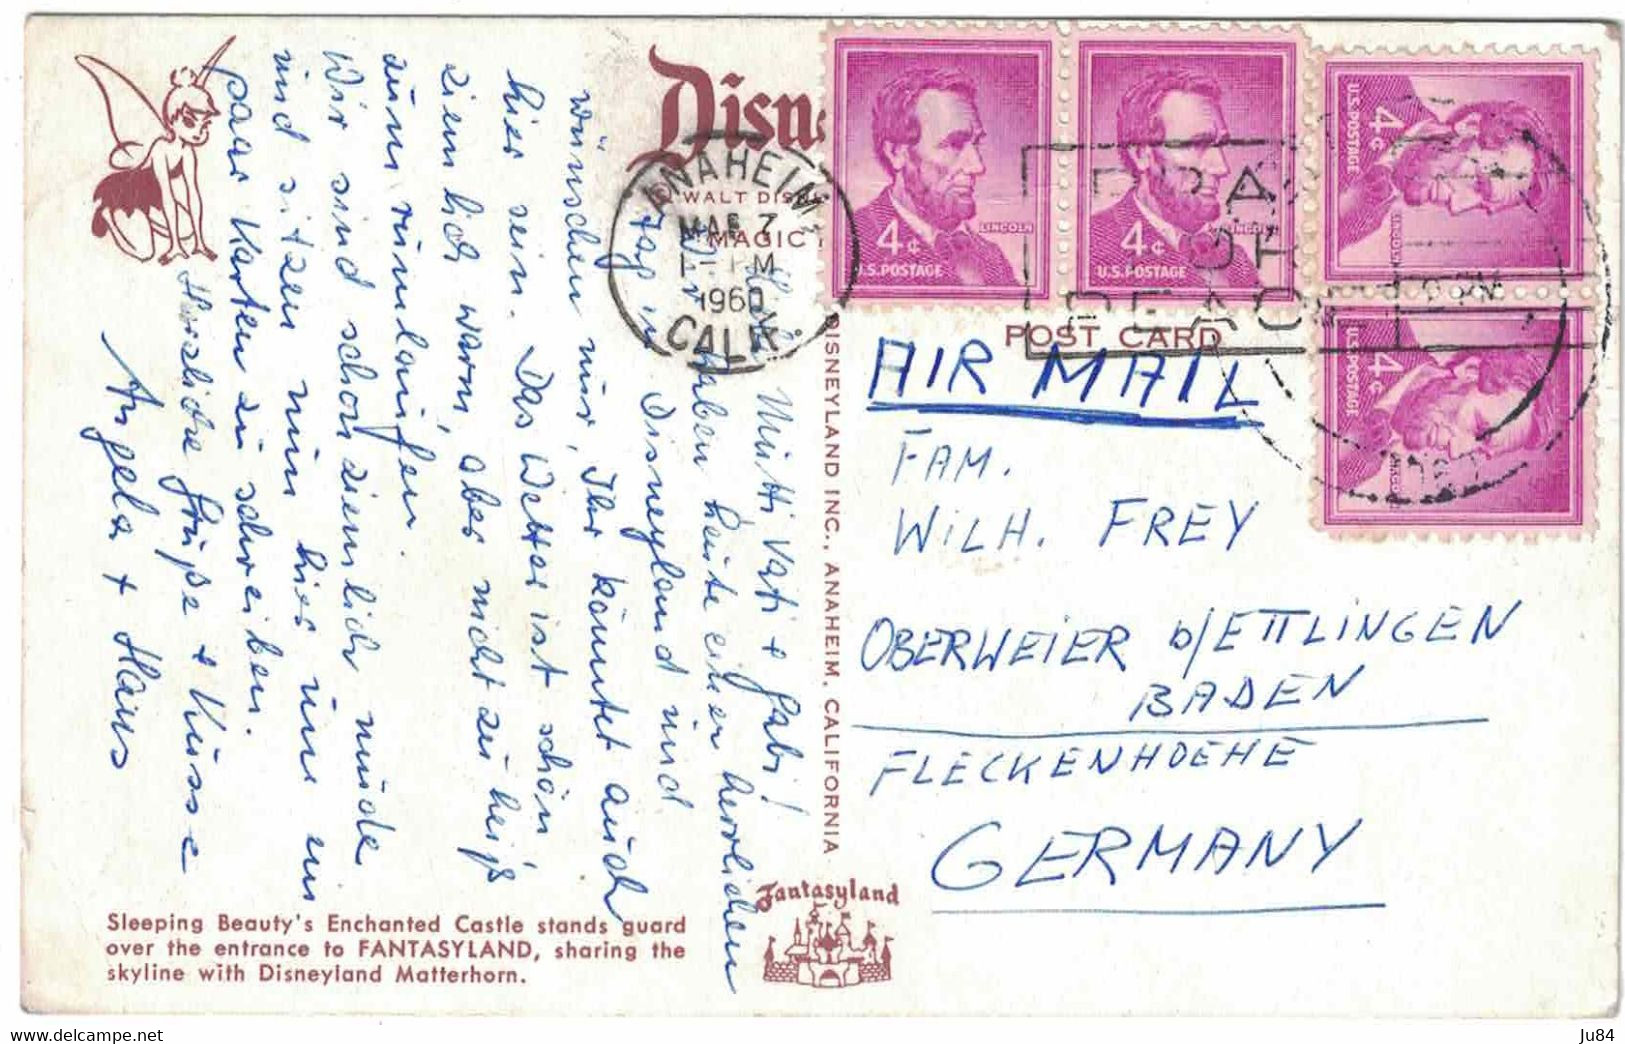 Disne
© WALT DISN
MAGIC
ANAHEIM
CALIF.
MAR 7
PM
1960
PRAY
FOR
PEACE
4¢
LINCOLN
U.S. POSTAGE
4¢
LINCOLN
U.S. POSTAGE
4¢
LINCOLN
U.S. POSTAGE
4¢
LINCOLN
U.S. POSTAGE
POST CARD
AIR MAIL
FAM.
WILH. FREY
OBERWEIER b/ETTLINGEN
BADEN
FLECKENHOEHE
GERMANY
Mutti Vati + Gabi!
Wir haben heute einen herrlichen
Tag in Disneyland und
wünschen nur, Ihr könntet auch
hier sein. Das Wetter ist schön
ziemlich warm, aber nicht zu heiß
zum rumlaufen.
Wir sind schon ziemlich müde
und sitzen nun hier um ein
paar Karten zu schreiben.
Herzliche Grüße + Küsse
Angela + Hans
DISNEYLAND INC., ANAHEIM, CALIFORNIA
Fantasyland
Sleeping Beauty's Enchanted Castle stands guard
over the entrance to FANTASYLAND, sharing the
skyline with Disneyland Matterhorn.
www.delcampe.net
Ju84